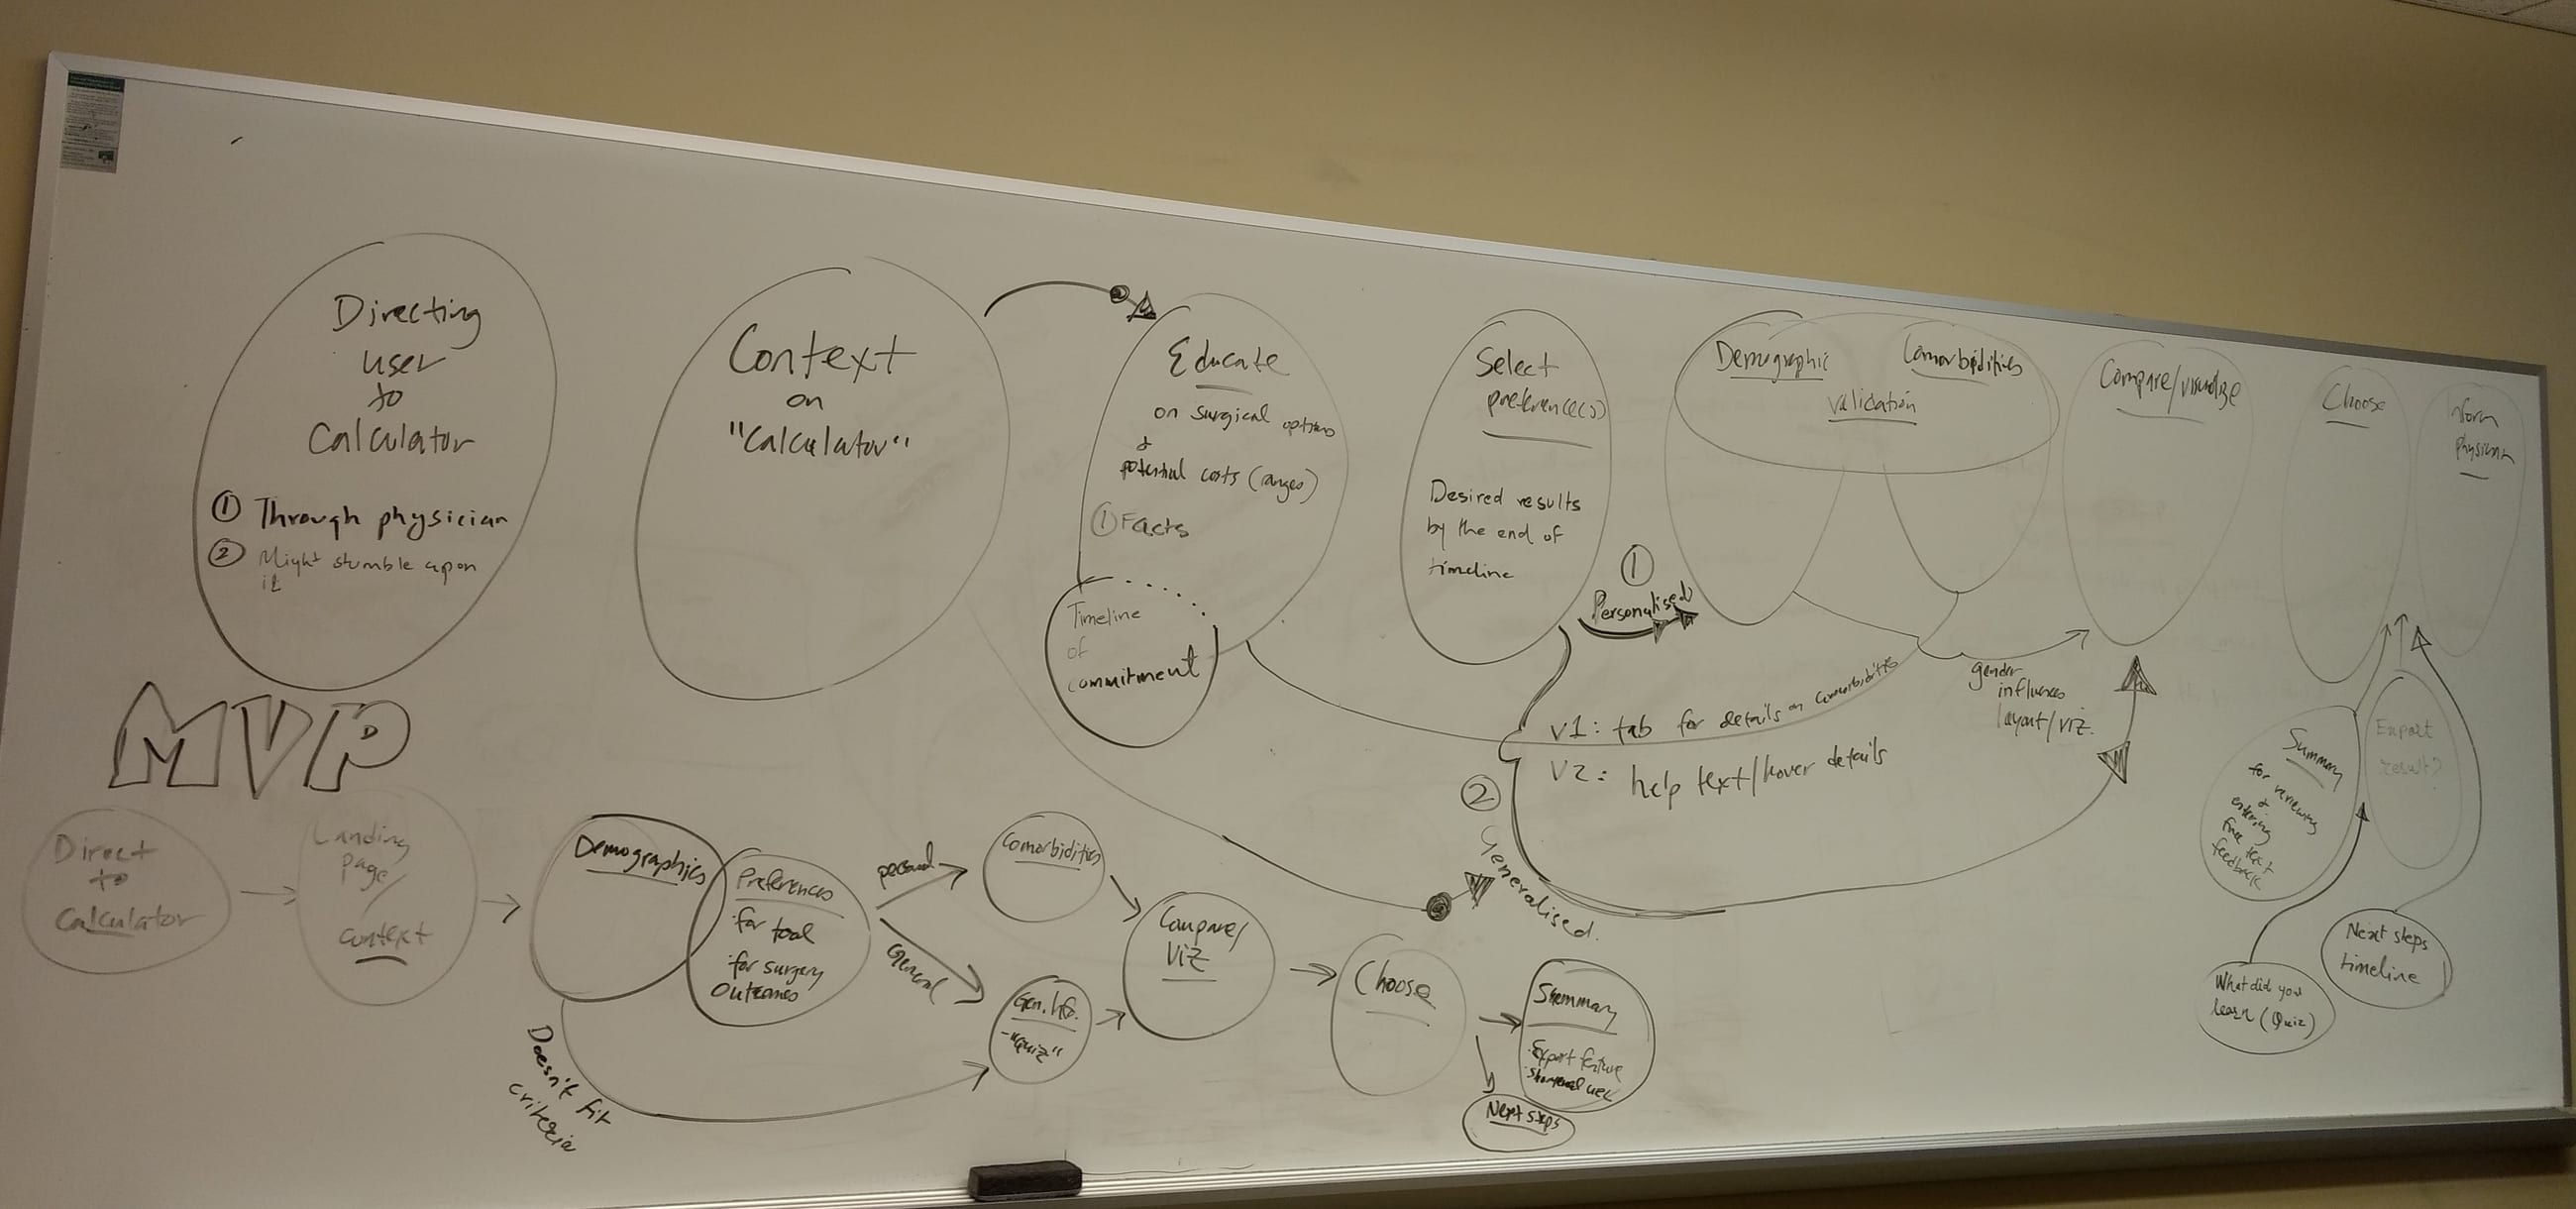 Directing
user
to
Calculator
① Through physician
② Might stumble upon
it
Context
on
"Calculator"
Educate
on surgical options
&
potential costs (ranges)
① Facts
Timeline
of
commitment
Select
preference(s)
Desired results
by the end of
timeline
①
Personalised
Demographic
Comorbidities
validation
Compare/visualize
Choose
Inform
physician
V1: tab for details on comorbidities
V2: help text/hover details
gender
influences
layout/viz.
②
Generalised.
Summary
for reviewing
&
entering
free text
feedback
Export
result?
Next steps
timeline
What did you
learn (Quiz)
MVP
Direct
to
Calculator
Landing
page/
context
Demographics
Preferences
·for tool
·for surgery
outcomes
personal
General
Doesn't fit
criteria
Comorbidities
Gen. Info.
-"quiz"
Compare/
Viz
Choose
Summary
·Export feature
Next steps